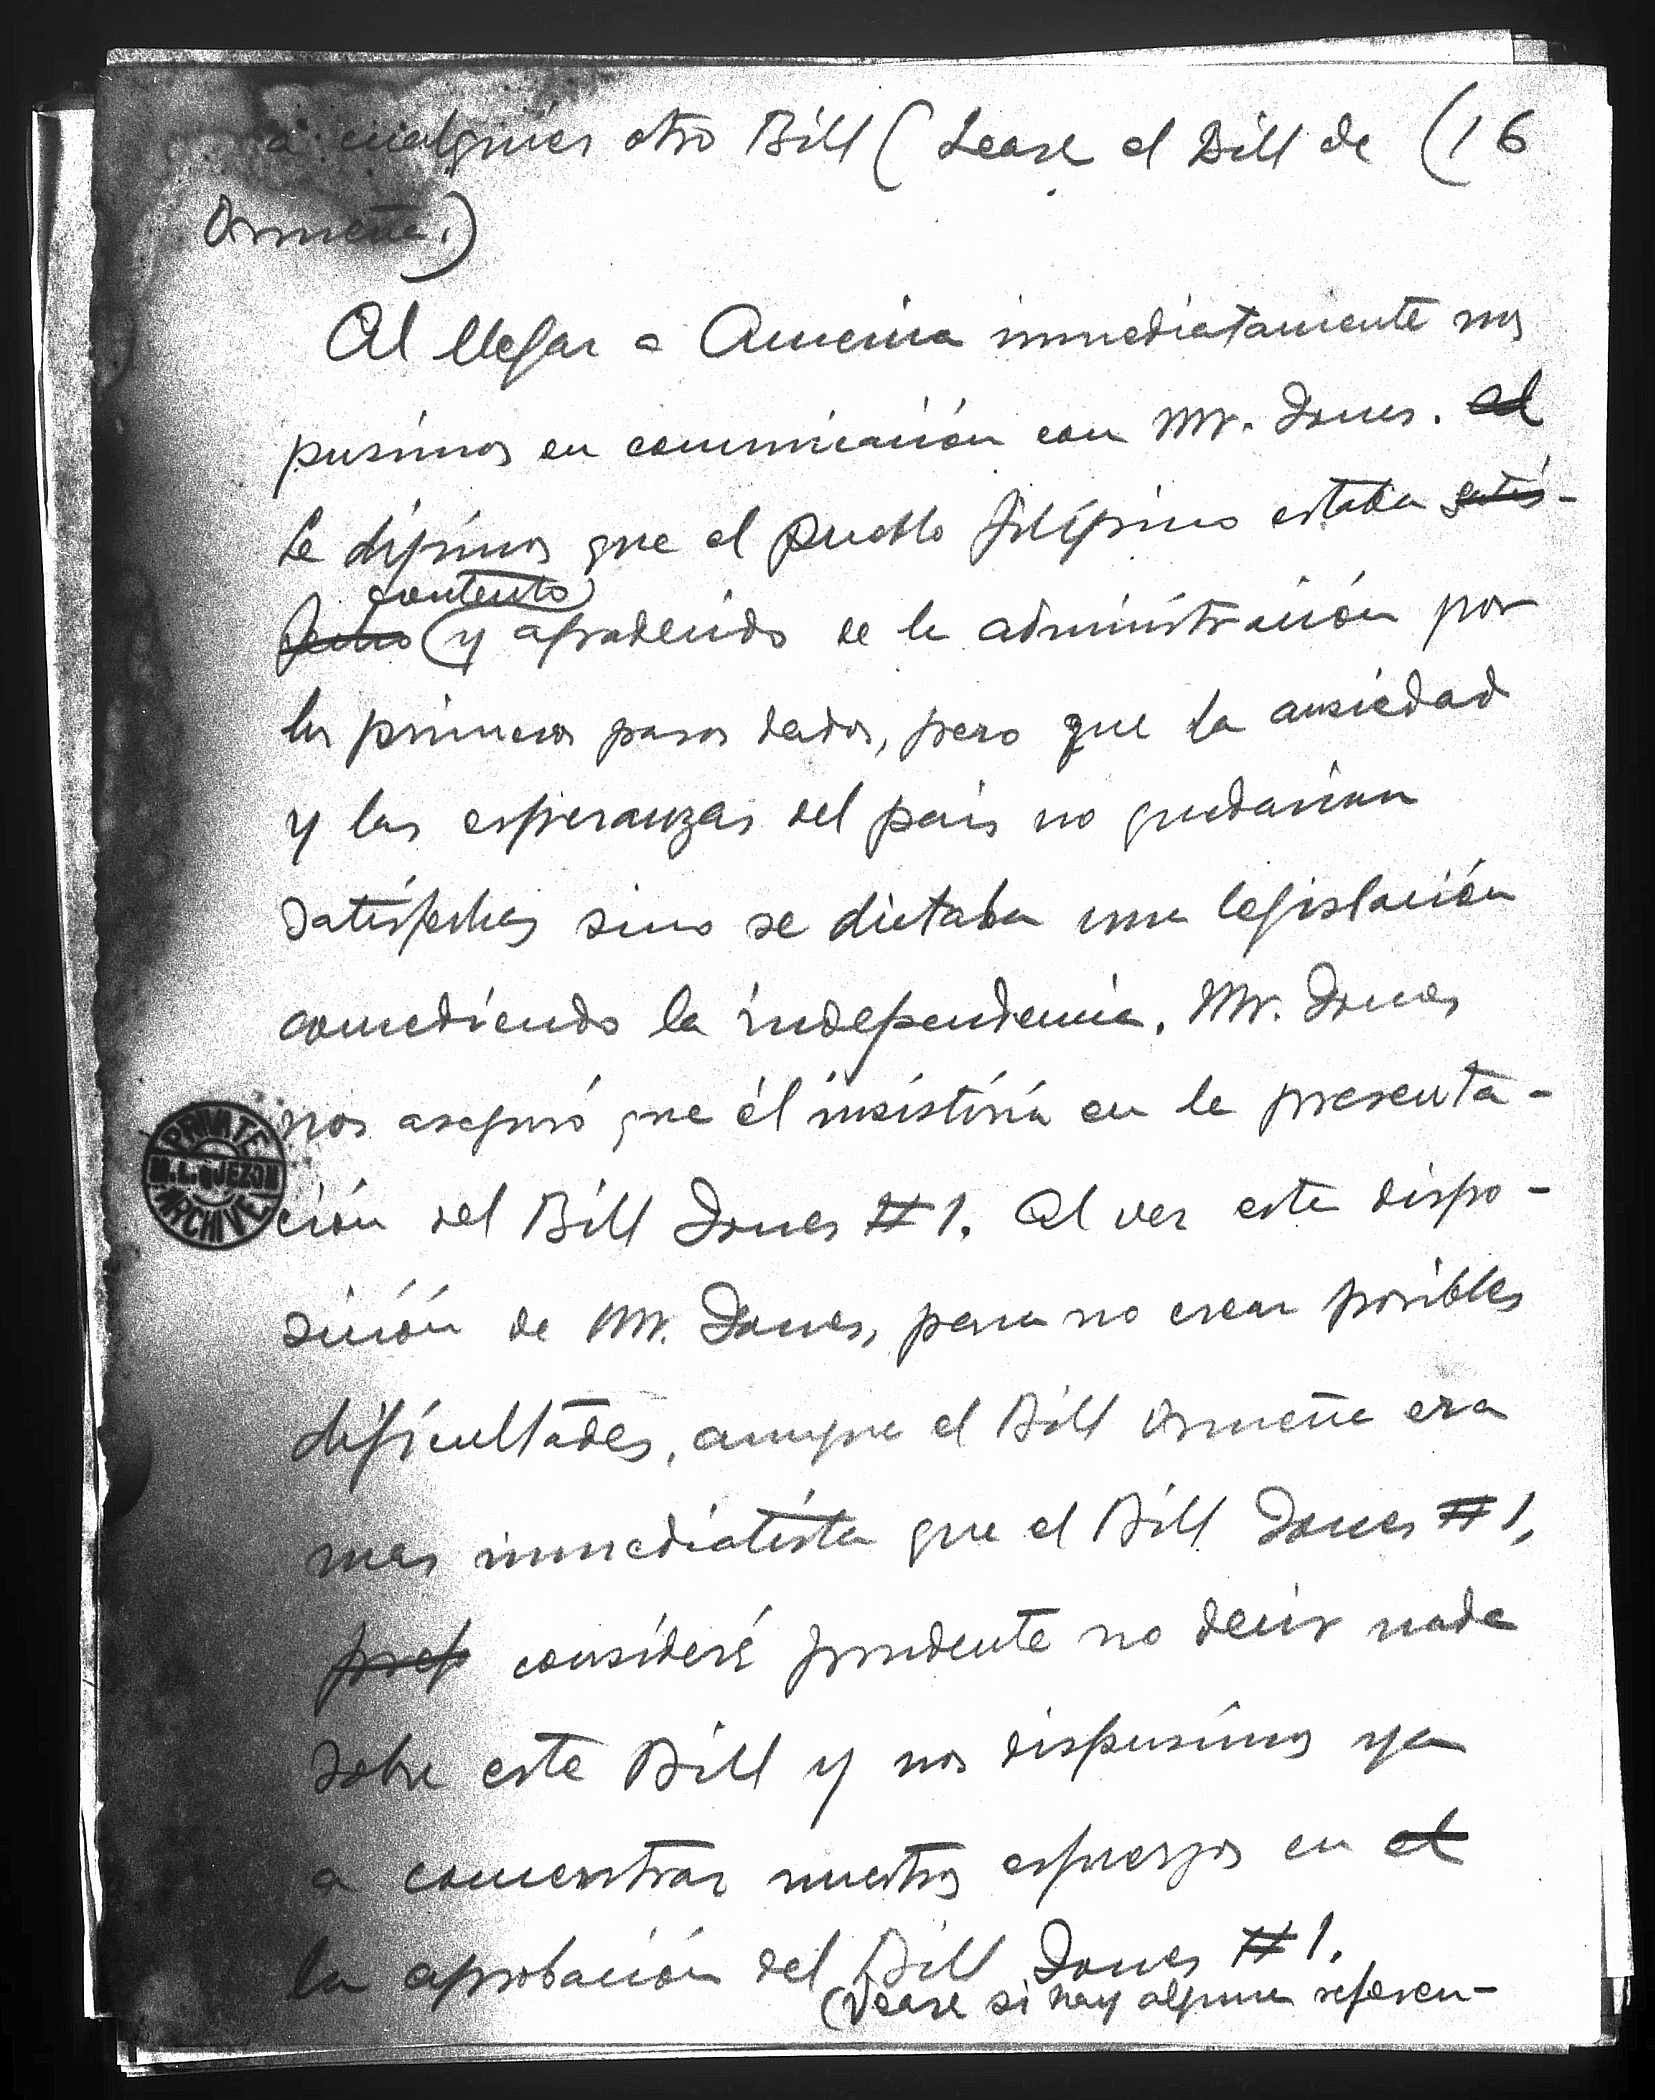 a cualquier otro Bill (Lease el Bill de (16
Osmeña.)
Al llegar a America inmediatamente nos
pusimos en comunicación con Mr. Jones. al
Le dijimos que el pueblo filipino estaba satis-
contento
fecho (y agradecido de la administración por
los primeros pasos dados, pero que la ansiedad
y las esperanzas del pais no quedarian
satisfechas sino se dictaba una legislación
concediendo la independencia. Mr. Jones
nos aseguró que él insistiria en la presenta-
ción del Bill Jones #1. Al ver esta dispo-
sición de Mr. Jones, para no crear posibles
dificultades, aunque el Bill Osmeña era
mas inmediatista que el Bill Jones #1,
prefe consideré prudente no decir nada
sobre este Bill y nos dispusimos ya
a concentrar nuestros esfuerzos en el
la aprobación del Bill Jones #1.
(Vease si hay alguna referen-
PRIVATE
M. L. QUEZON
ARCHIVE